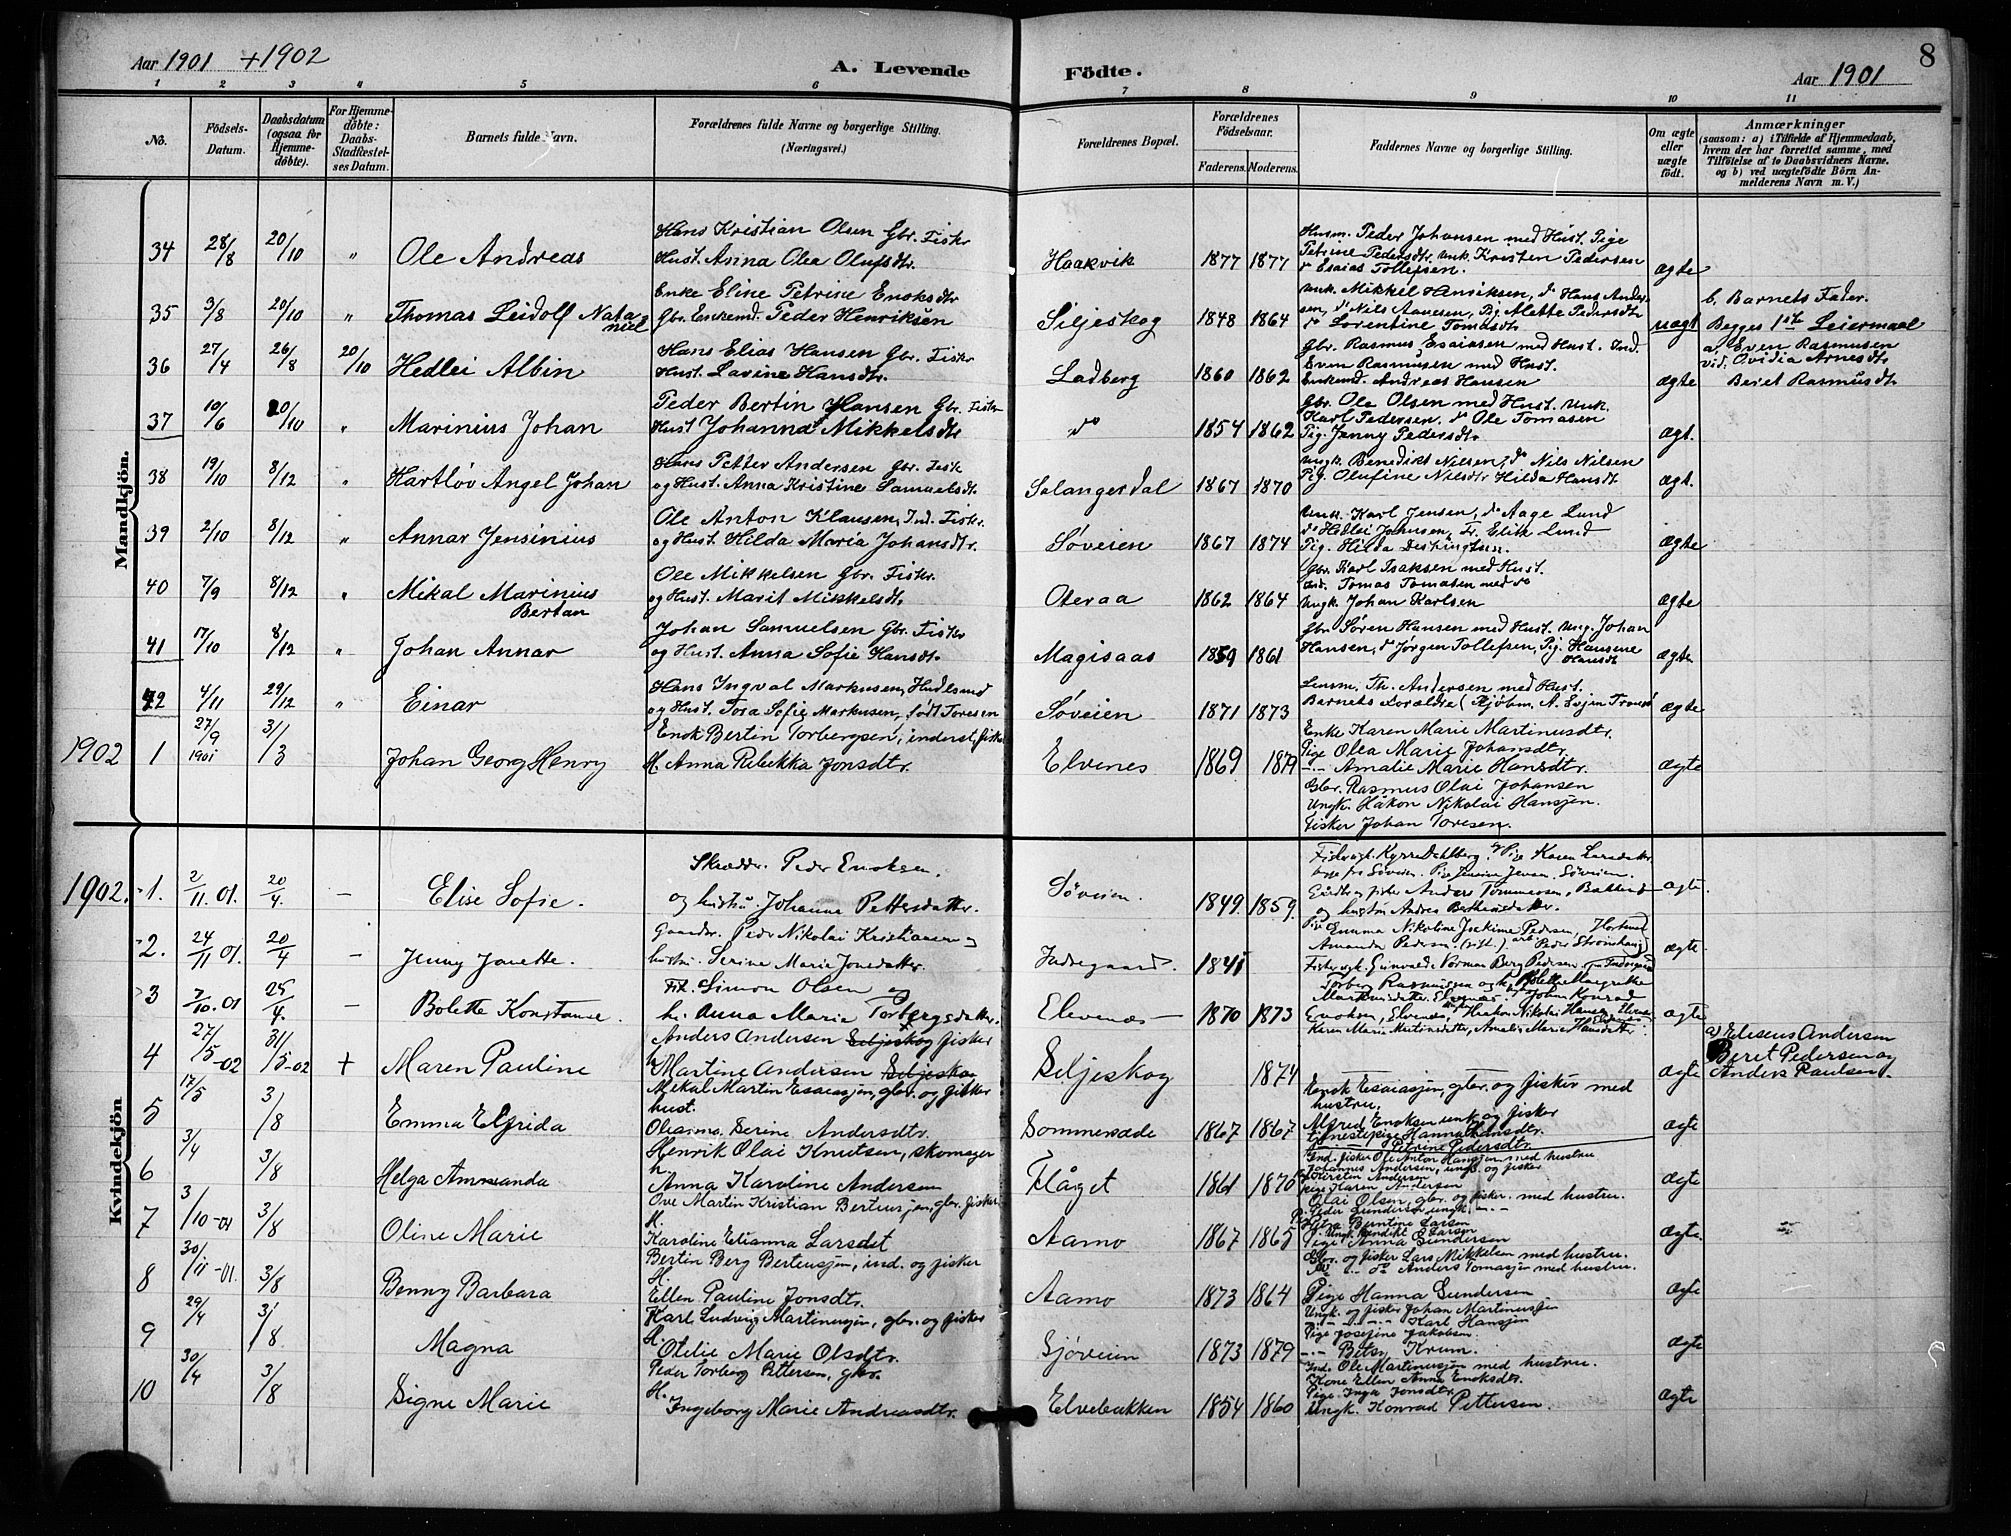 Aar 1901 + 1902
A. Levende Födte.
Aar 1901
8
1 2 3 4 5 6 7 8 9 10 11
No.
Födsels-Datum.
Daabsdatum (ogsaa for Hjemmedöbte).
For Hjemmedöbte: Daabs-Stadfæstelses Datum.
Barnets fulde Navn.
Forældrenes fulde Navne og borgerlige Stilling. (Næringsvei.)
Forældrenes Bopæl.
Forældrenes Födselsaar.
Faderens. Moderens.
Faddernes Navne og borgerlige Stilling.
Om ægte eller uægte födt.
Anmærkninger
(saasom: a) i Tilfælde af Hjemmedaab, hvem der har forrettet samme, med Tilföielse af to Daabsvidners Navne. og b) ved uægtefödte Börn Anmelderens Navn m. V.)
Mandkjön.
34 28/8 20/10 " Ole Andreas
Hans Kristian Olsen Gbr. Fisker
Hust. Anna Olea Olufsdtr.
Haakvik 1877 1877
Husm. Peder Johansen med Hust. Pige
Petrine Pedersdtr. unk. Kristen Pedersen
& Esaias Tollefsen. ægte
35 3/8 20/10 " Thomas Leidolf Nataniel
Enke Eline Petrine Enoksdtr
Gbr. Enkemd. Peder Henriksen
Siljeskog 1848 1864
unk. Mikkel Henriksen, do Hans Andersen, do Nils Aanesen, Pig. Mette Pedersdtr
do Lorentine Tomasdtr uægt
b. Barnets Fader.
Begges 1ste Leiermaal
36 27/4 26/8 20/10 Hedlei Albin
Hans Elias Hansen Gbr. Fisker
Hust. Lavine Hansdtr.
Ladberg 1860 1862
Gbr. Rasmus Esaiasen med Hust. Ind.
Even Rasmusen med Hust.
Enkemd. Andreas Hansen ægte
a. Even Rasmusen
vid: Ovidia Arnesdtr
Beret Rasmusdtr
37 10/6 20/10 " Marinius Johan
Peder Bertin Hansen Gbr. Fisker
Hust Johanna Mikkelsdtr
do 1854 1862
Gbr. Ole Olsen med Hust. Unk.
Karl Pedersen. do Ole Tomasen
Pig. Jenny Pedersdtr. ægt.
38 19/10 8/12 " Hartløv Angel Johan
Hans Petter Andersen Gbr. Fisk
og Hust. Anna Kristine Samuelsdtr.
Salangsdal 1867 1870
Ungk. Benedikt Nilsen, do Nils Nilsen
Pig. Olufine Nilsdtr Hilda Hansdt ægt.
39 2/10 8/12 " Annar Jensinius
Ole Anton Klausen, Ind. Fisker.
og Hust. Hilda Maria Johansdtr.
Søveien 1867 1874
Unk. Karl Jensen, do Aage Lund
do Hedlei Johnsen, Fr. Elise Lund
Pig. Hilda ægte
40 7/9 8/12 " Mikal Marinius Bertan
Ole Mikkelsen Gbr. Fisker.
og Hust. Marit Mikkelsdtr
Oteraa 1862 1864
Gbr. Karl Isaksen med Hust.
Ind. Tomas Tomasen med do
Ungk. Johan Karlsen ægte
41 17/10 8/12 " Johan Annar
Johan Samuelsen Gbr. Fisker
og Hust. Anna Sofie Hansdtr.
Magisaas 1859 1861
Gbr. Søren Hansen med Hust. Ung. Johan
Hansen, do Jørgen Tollefsen, Pig. Hansine
Hansdt ægte
42 4/11 29/12 " Einar
Hans Ingval Markusen, Hndlsmd
og Hust. Tora Sofie Markusen, født Toresen
Søveien 1871 1873
Lensm. Th. Andersen med Hust.
Barnets Forældre (Kjøbm. A. Evjen Tromsö ægte
1902 1 27/9 1901 31/3 Johan Georg Henry
Enok Bertin Torbergsen, inderst, fisker
H. Anna Rebekka Jonsdtr.
Elvenes 1869 1879
Enke Karen Marie Martinusdtr.
Pige Olea Marie Johansdtr.
-"- Amalie Marie Hansdtr. ægte
Gbr. Rasmus Olai Johansen
Ungk. Håkon Nikolai Hansen.
Fisker Johan Toresen.
Kvindekjön
1902. 1. 2/11 01. 20/4. — Elise Sofie.
Skrædder. Peder Enoksen.
og hustru Johanna Pettersdatter.
Søveien. 1849. 1859.
Dahlberg. Pige Karen Larsdatter
Søveien. Pige Jensine Jensen, Søveien.
Anders Tommesen,
og hustru Andrea Berthinsdatter. ægte.
2. 24/11 01. 20/4 — Jenny Jonette.
Gaardbr. Peder Nikolai Kristiansen og
hustru Serine Marie Jonsdatter.
Indregaard. 1841
Pige Emma Nikoline Joakime Pedersen,
Amanda Pedersen
Norman Berg Pedersen ægte.
3 7/10. 01 25/4. — Bolette Konstanse.
Fisk. Simon Olsen og
h. Anna Marie Torbergsdatter.
Elvenæs — 1870 1873
Torberg Rasmussen
Elvenæs. Johan Konrad
Enoksen, Elvenæs Haakon Nikolai Hansen
Karen Marie Martinsdatter, Amalie Marie Hansdatter. ægte
4 27/5-02 31/5-02 + Maren Pauline
Anders Andersen Seljeskog fisker
h.
Martine Andersen Seljeskog
Seljeskog 1874 ægte
a) Eliseus Andersen
Beret Pedersen og
Anders Paulsen.
5 17/5 3/8 Emma Elfrida
Mikal Martin Esaiassen, gbr. og fisker
hust.
Oleanna Serine Andersdtr.
Sommersæde 1867 1867
Enok Esaiassen, gbr. og fisker med
hustru.
Alfred Enoksen unk. og fisker
tjenestepige Hanna Hansdtr.
Petrine Pedersdtr. ægte
6 3/4 3/8 Helga Ammanda
Henrik Olai Knutsen, skomager
h
Anna Karoline Andersen
Flåget 1861 1870
Ind. fisker Ole Anton Hansen med hustru
Johannes Andersen, ungk. og fisker
Kirsten Andersen
pige Karen Andersen ægte
7 3/10-01 3/8 Oline Marie
Ove Martin Kristian Berteussen, gbr. fisker
H.
Karoline Elianna Larsdt
Aamo 1867 1865
Olai Olsen, gbr. og fisker. med hustru.
Peder Sundersen ungk. -"-
Berntine Larsen
Ungk. Bendikt Larsen
Pige Anna Sundersen ægte.
8 30/11-01. 3/8 Benny Barbara
Bertin Berg Berteussen, ind. og fisker
H.
Ellen Pauline Jonsdtr.
Aamo 1873 1864
Gbr. og fisker Lars Mikkelsen med hustru.
do -"- do Anders Tomassen med hustru.
Pige Hanna Sundersen
Ungk. og fisker Johan Martinussen ægte
9 29/4 3/8 Magna
Karl Ludvig Martinussen, gbr. og fisker
H.
Otilie Marie Olsdtr.
Sjøveien 1873 1879
-"- Karl Hanssen
Pige Josefine Jakobsen.
-"- Betsy Krum. ægte
10 30/4 3/8 Signe Marie
Peder Torberg Pettersen, gbr.
H.
Ingeborg Marie Andreasdtr.
Elvebakken 1854 1860
Ind. Ole Martinussen med hustru.
Kone Ellen Anna Enoksdtr.
Pige. Inga Jonsdtr.
Ungk. Konrad Pettersen. ægte